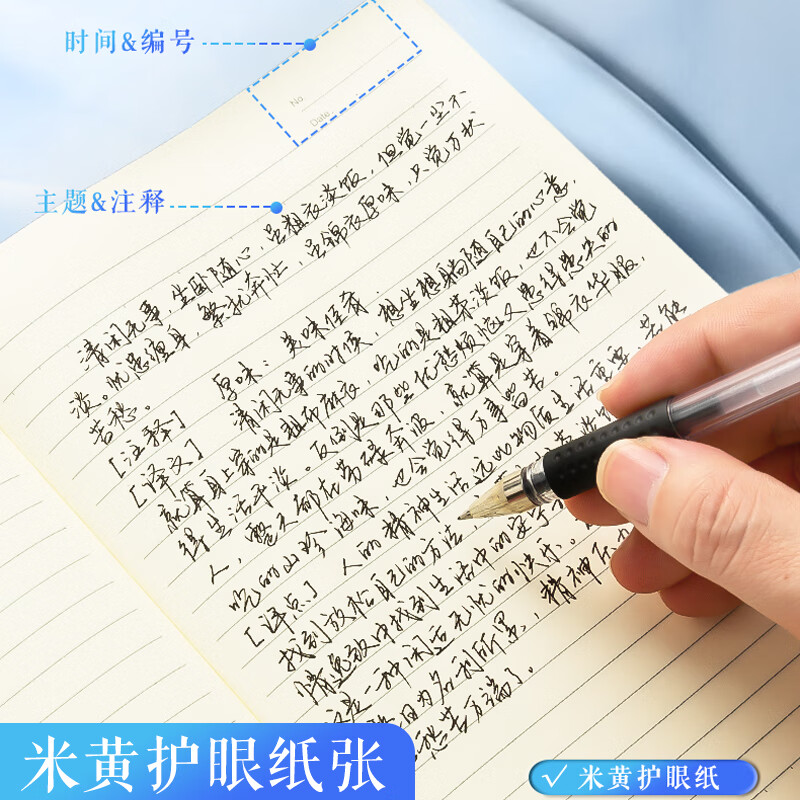 时间&编号
No
Date
主题&注释
清闲无事,坐卧随心,虽粗衣淡饭,但觉一尘不
淡。忧患缠身,繁扰奔忙,虽锦衣原味,只觉万状
苦愁。
[注释] 原味:美味佳肴
[译文] 清闲无事的时候,想坐想躺随自己的心意,
就算身上穿的是粗布麻衣,吃的是粗茶淡饭,也不会觉
得生活平淡。反倒是那些忧愁烦恼又患得患失的
人,整天都在劳碌奔波,就算是穿着锦衣华服,
吃的山珍海味,也会觉得万事皆苦。
[译点] 人的精神生活远比物质生活重要,若能
找到放松自己的方法
情逸致中找到生活中的安宁
这是一种闲适无忧的快乐。
因为名利所累,精神压力
愁苦万端了。
米黄护眼纸张
米黄护眼纸